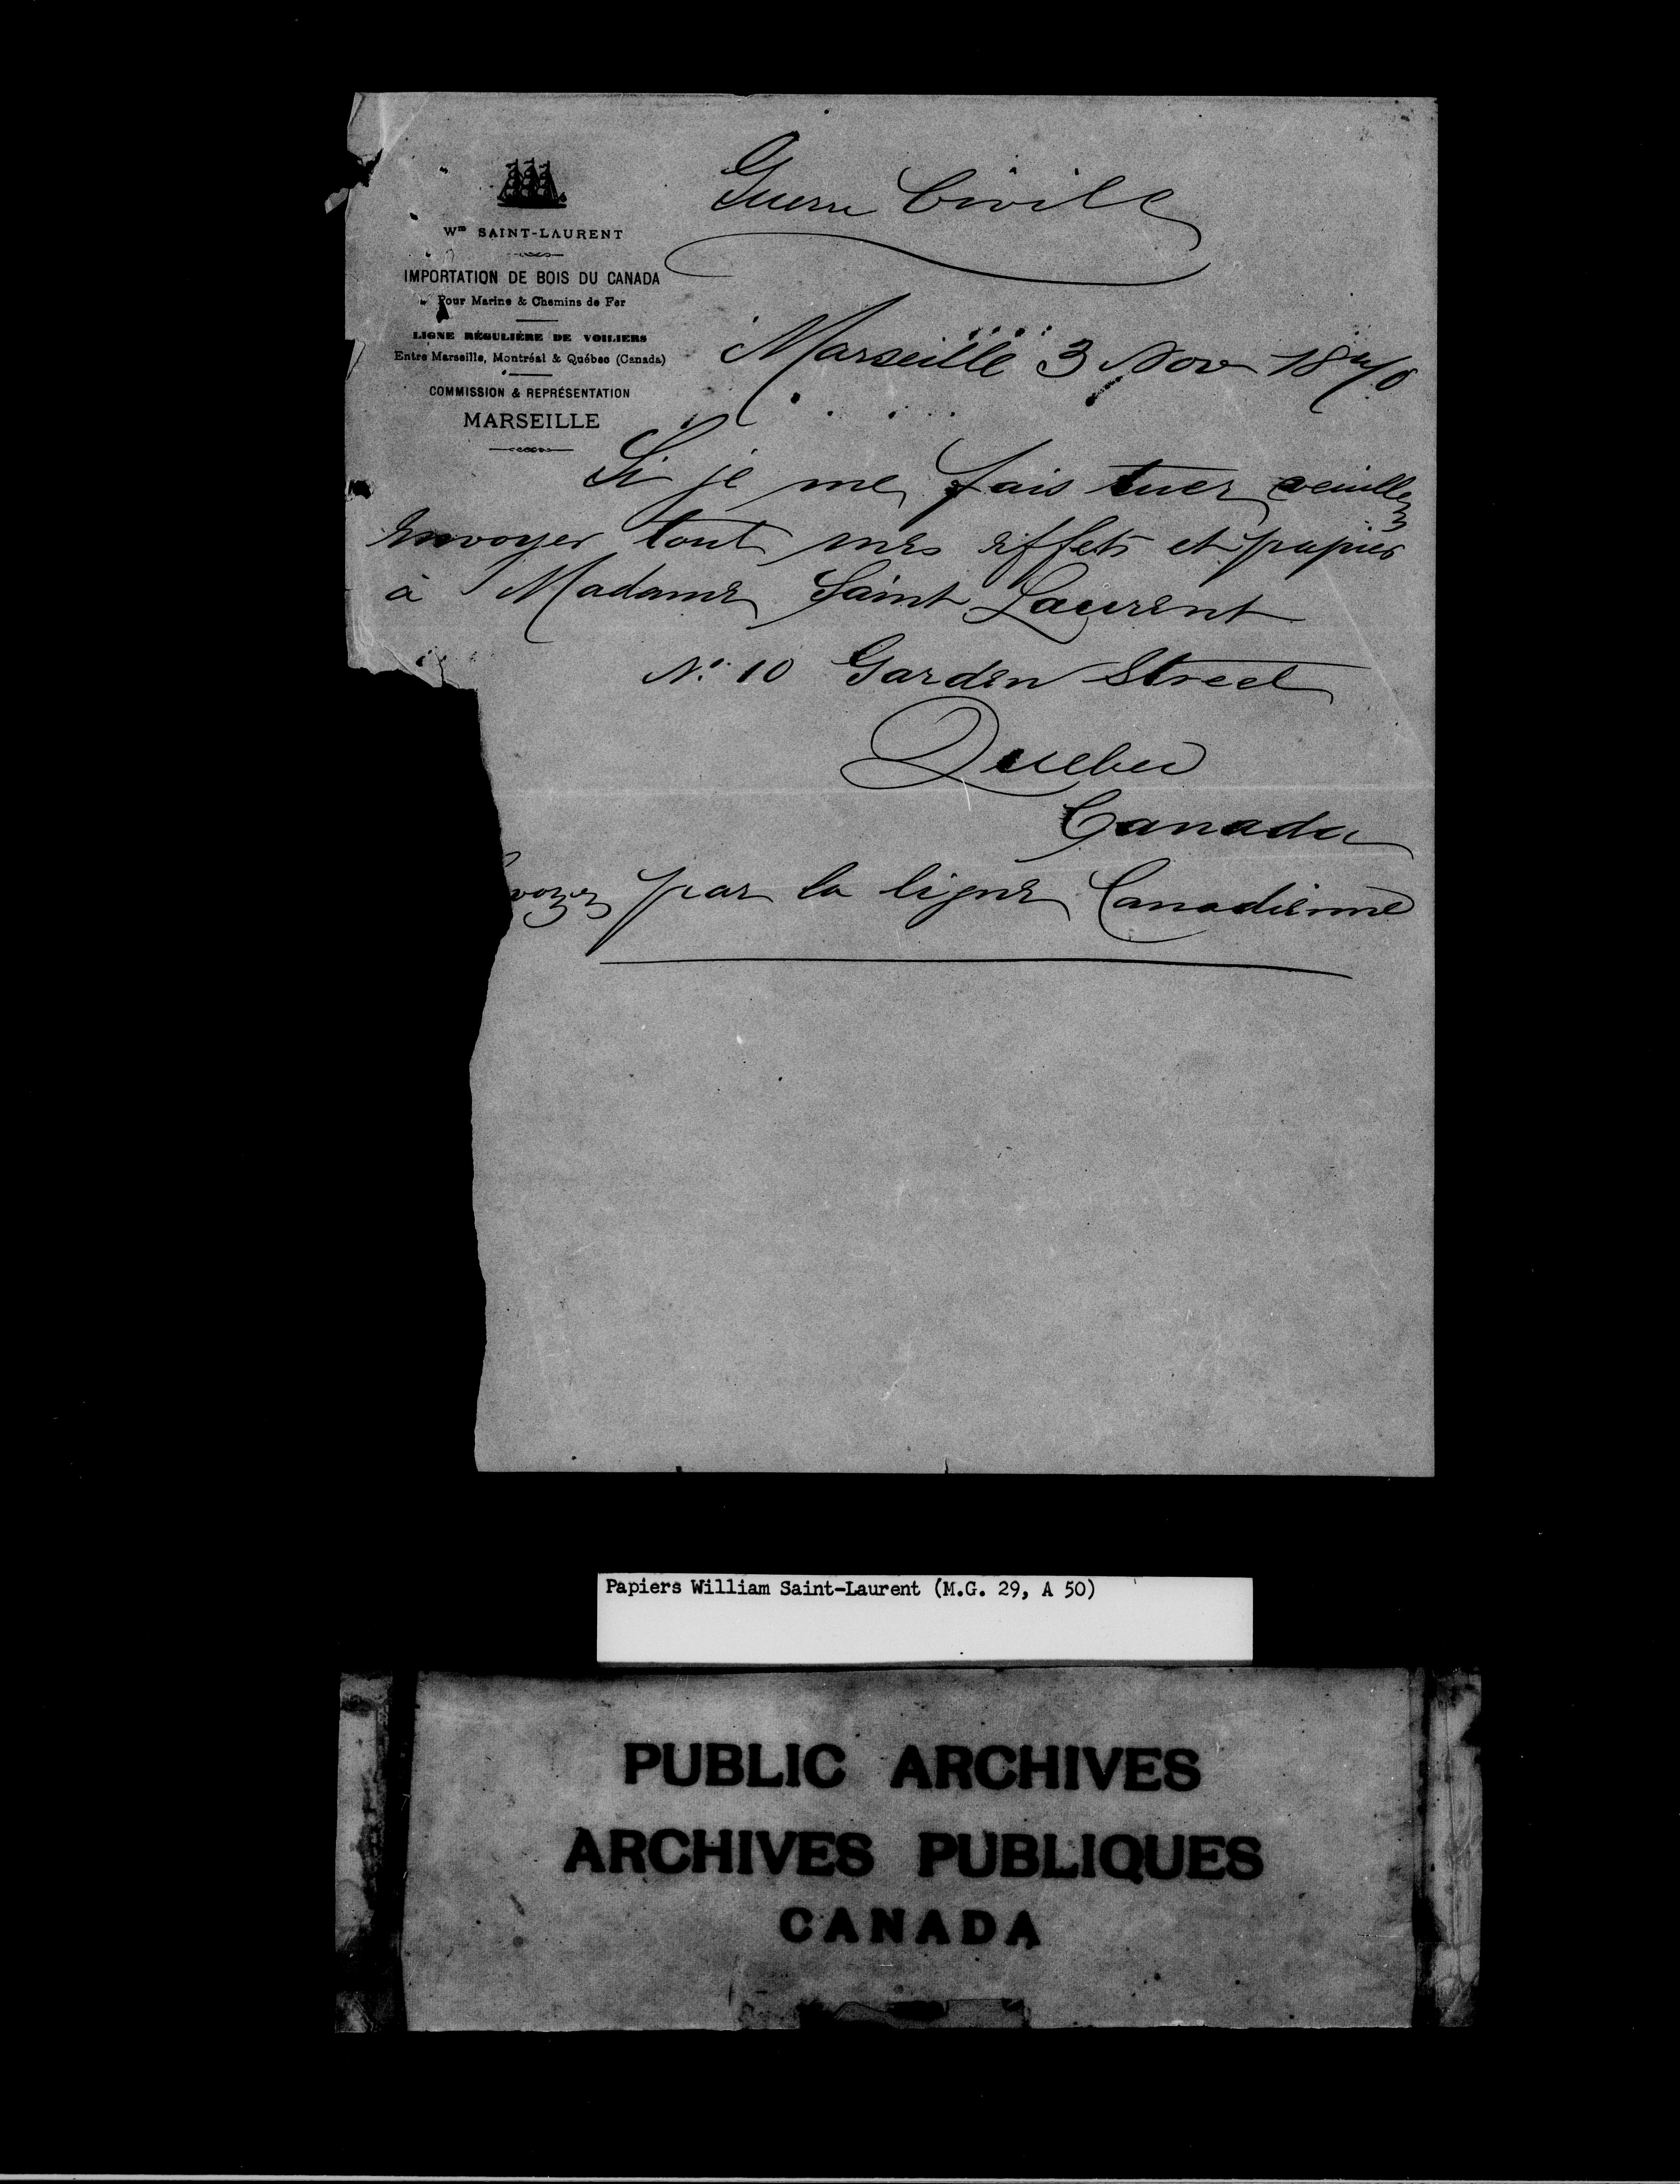 Guerre Civile
Wm SAINT-LAURENT
IMPORTATION DE BOIS DU CANADA
Pour Marine & Chemins de Fer
LIGNE RÉGULIÈRE DE VOILIERS
Entre Marseille, Montréal & Québec (Canada)
COMMISSION & REPRÉSENTATION
MARSEILLE
Marseille 3 Nov 1870
Si je me fais tuer veuillez
envoyer tout mes effets et papier
à Madame Saint Laurent
No. 10 Garden Street
Quebec
Canada
voyez par la ligne Canadienne
Papiers William Saint-Laurent (M.G. 29, A 50)
PUBLIC ARCHIVES
ARCHIVES PUBLIQUES
CANADA